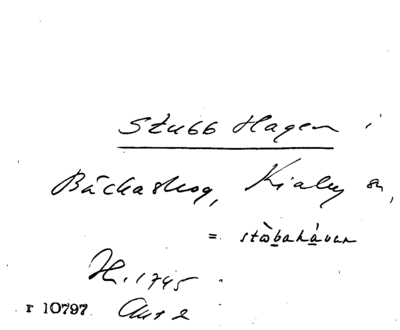 Stubb Hagen i
Bäckaskog, Kiaby sn,
= 
H. 1745
r 10797. Akt 2